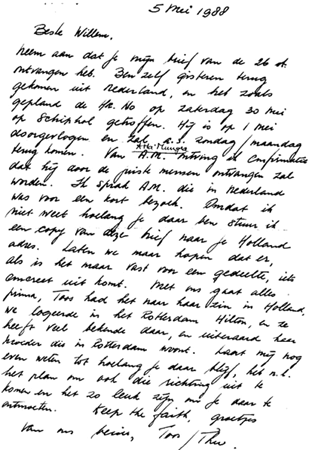 5 Mei 1988
Beste Willem,
Neem aan dat je mijn brief van de 26 st.
ontvangen heb. Ben zelf gisteren terug
gekomen uit Nederland, en het zoals
gepland de Hr. No op zaterdag 30 mei
op Schiphol getroffen. Hij is op 1 mei
doorgevlogen en zal a.s. zondag/maandag
terug komen. Van A.M. de confirmatie
dat hij door de juiste mensen ontvangen zal
worden. Ik sprak A.M. die in Nederland
was voor een kort bezoek. Omdat ik
niet weet hoelang je daar ben stuur ik
een copy van deze brief naar je Holland
adres. Laten we maar hopen dat er,
als is het maar vast voor een gedeelte, iets
concreet uit komt. Met ons gaat alles
prima, Toos had het naar haar zin in Holland,
we logeerde in het Rotterdam Hilton, en ze
heeft veel bekende daar, en uiteraard haar
moeder die in Rotterdam woont. Laat mij nog
even weten tot hoelang je daar blijf, heb n.l.
het plan om ook die richting uit te
komen en het zo leuk zijn om je daar te
ontmoeten. Keep the faith, groetjes
van ons beide, Toos/Theo.